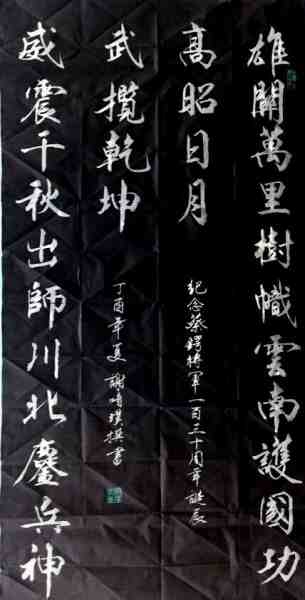 雄關萬里樹幟雲南護國功
高昭日月
紀念蔡鍔將軍一百三十周年誕辰
威震千秋出師川北鏖兵神
武攬乾坤
丁酉年夏 謝 撰書